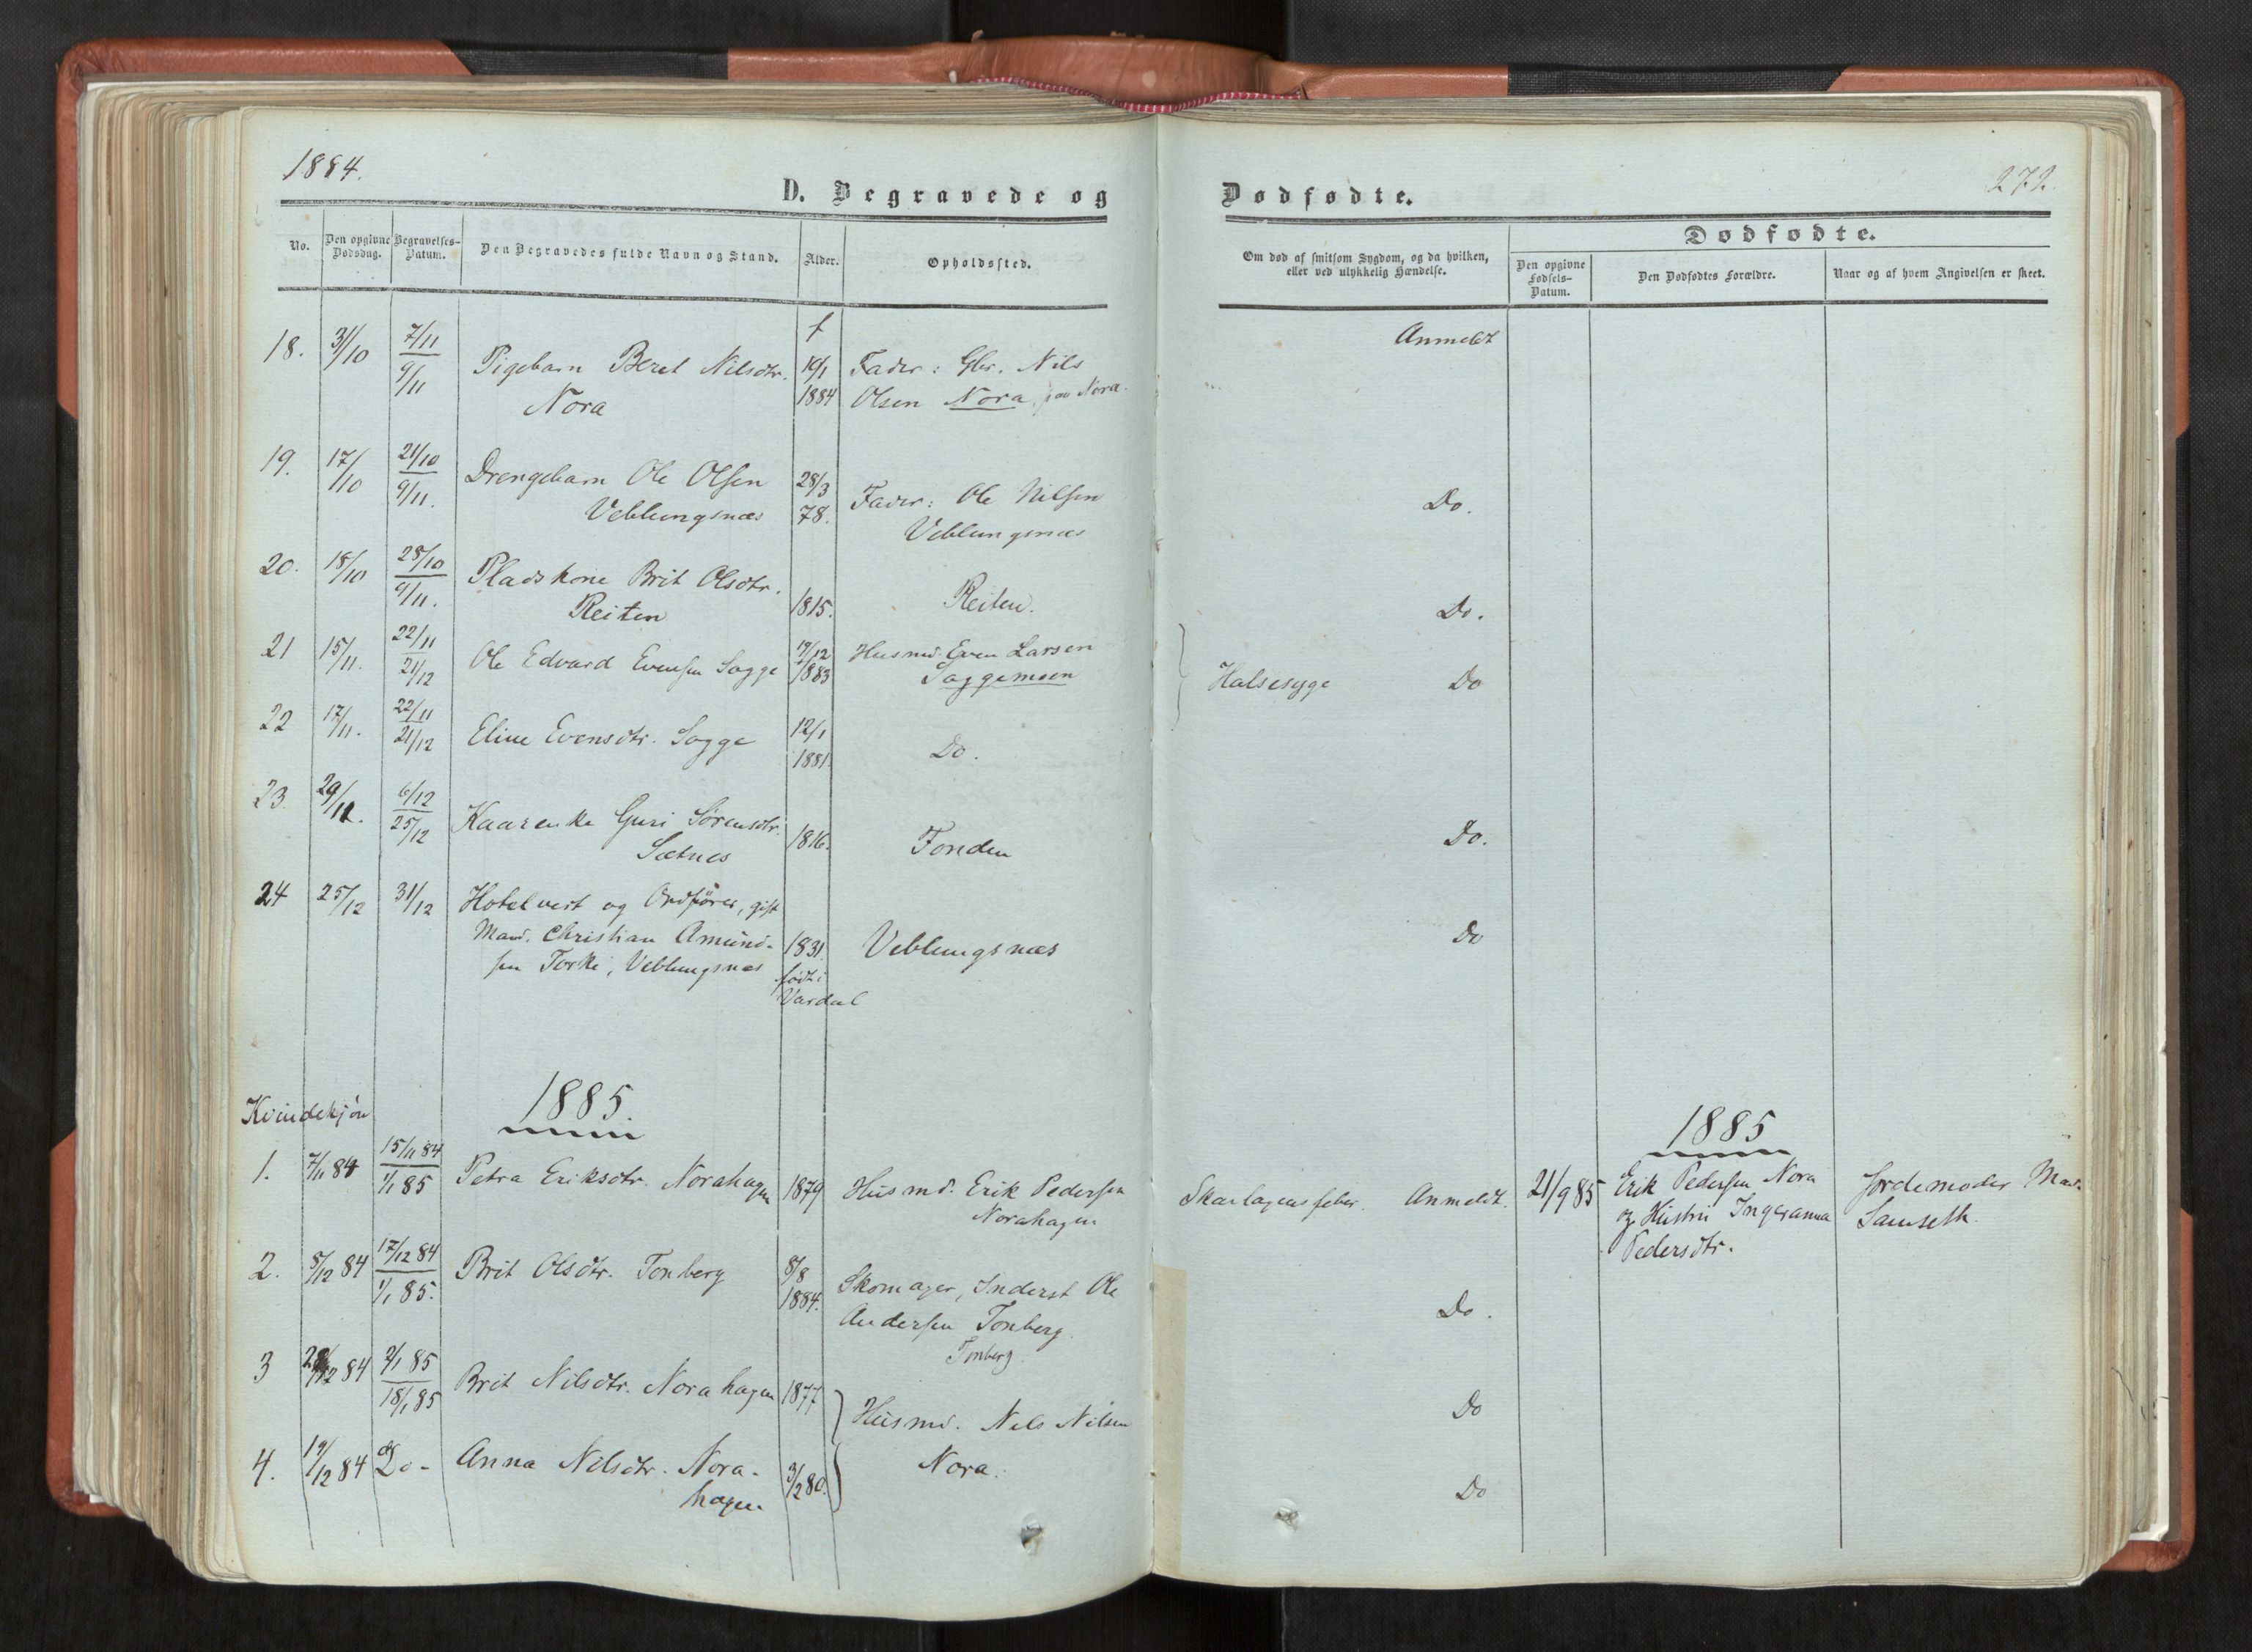 1884.
D. Begravede og
Dødfødte.
272.
No.
Den opgivne Dødsdag.
Begravelses-Datum.
Den Begravedes fulde Navn og Stand.
Alder.
Opholdssted.
Om død af smitsom Sygdom, og da hvilken,
eller ved ulykkelig Hændelse.
Dødfødte.
Den opgivne Fødsels-Datum.
Den Dødfødtes Forældre.
Naar og af hvem Angivelsen er skeet.
18. 31/10 7/11 Pigebarn Beret Nilsdtr. f 19/1 Fader: Gbr. Nils Anmeldt
9/11 Nora 1884 Olsen Nora, paa Nora.
19. 17/10 21/10 Drengebarn Ole Olsen 28/3 Fader: Ole Nilsen Do.
9/11. Veblungsnæs 78. Veblungsnæs
20. 18/10 28/10 Pladskone Brit Olsdtr.
9/11. Reiten 1815. Reiten. Do.
21 15/11. 22/11 Ole Edvard Evensen Sogge 17/12 Husmd. Even Larsen Halsesyge Do
21/12 1883 Soggemoen
22 17/11. 22/11 Eline Evensdtr. Sogge 12/1 Do.
21/12 1881.
23. 29/11. 6/12 Kaarenke Guri Sørensdtr. 1816. Fonden Do.
25/12 Sætnes
24 25/12 31/12 Hotelvert og Ordfører, gift
Mand. Christian Amund- 1831. Veblungsnæs Do
sen Torke, Veblungsnæs født i
Vardal
1885.
Kvindekjøn
1885
1. 7/11 84 15/11 84 Petra Eriksdtr. Norahagen 1879 Husmd. Erik Pedersen Skarlagensfeber. Anmeldt. 21/9 85 Erik Pedersen Nora Jordemoder Mad.
1/1 85 Norahagen og Hustru Ingeranna Samseth.
Pedersdtr.
2. 8/12 84 17/12 84 Brit Olsdtr. Tonberg 8/8 Skomager, Inderst Ole Do.
1/1 85. 1884. Andersen Tonberg.
Tonberg.
3 12 84 2/1 85 Brit Nilsdtr. Norahagen 1877 Husmd. Nils Nilsen Do
18/1 85
4. 19/12 84 Do- Anna Nilsdtr. Nora- 3/2 80. Nora. Do
hagen